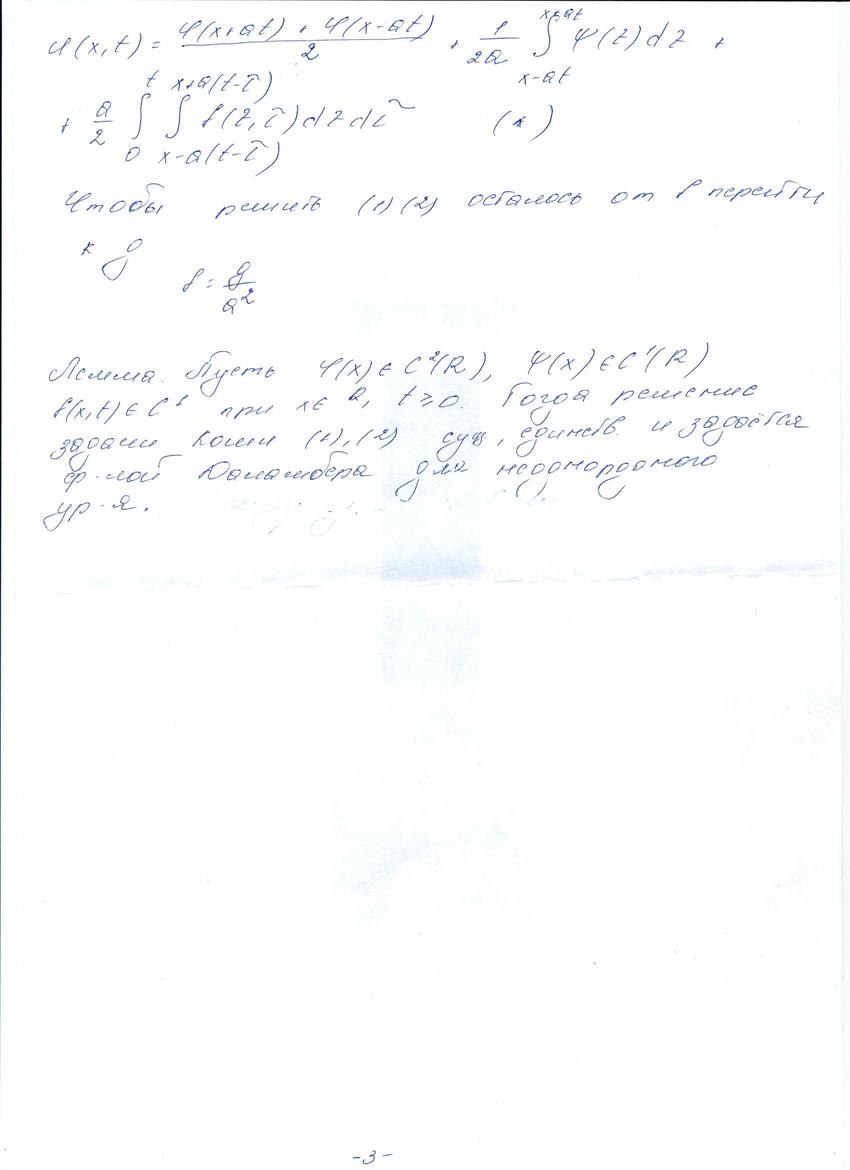 u(x,t) = (φ(x+at) + φ(x-at))/2 + 1/(2a) ∫_{x-at}^{x+at} ψ(z)dz +
+ a/2 ∫_0^t ∫_{x-a(t-τ)}^{x+a(t-τ)} f(z,τ)dzdτ (*)
Чтобы решить (1)(2) осталось от f перейти
к g
f = g/a²
Лемма. Пусть φ(x)∈C²(R), ψ(x)∈C'(R)
f(x,t)∈C¹ при x∈R, t≥0. Тогда решение
задачи Коши (1),(2) сущ., единств. и задаётся
ф-лой Даламбера для неоднородного
ур-я.
-3-